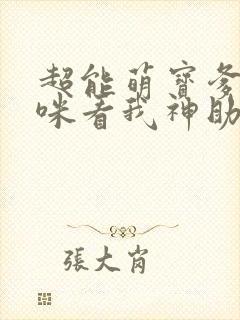 超能萌寶爹
咪看我神助
張大肖